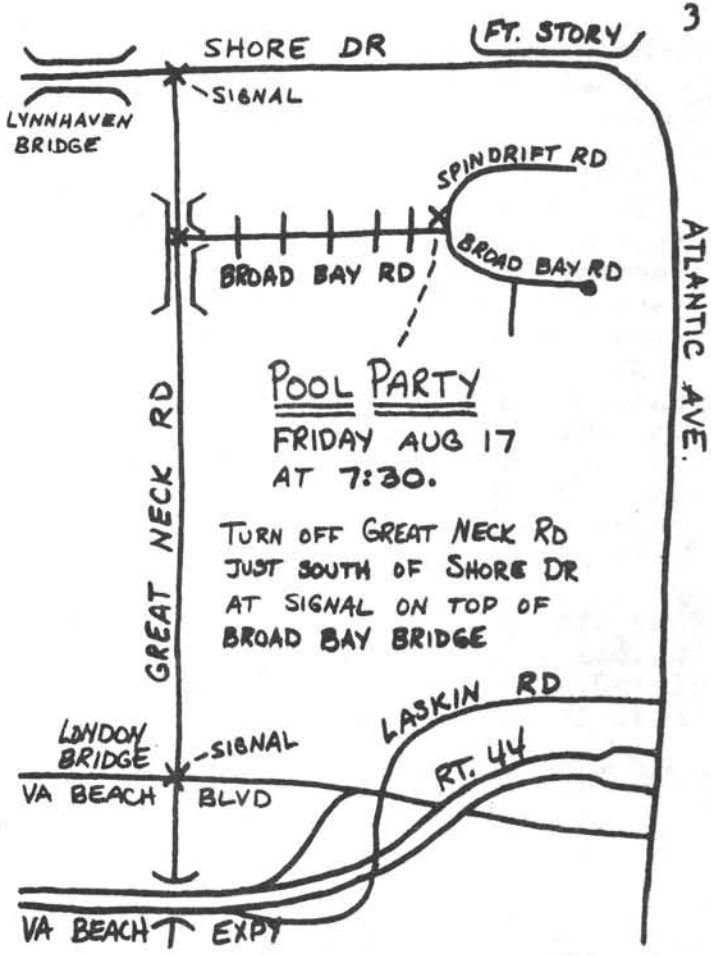 3
SHORE DR
FT. STORY
SIGNAL
LYNNHAVEN
BRIDGE
SPINDRIFT RD
BROAD BAY RD
BROAD BAY RD
ATLANTIC AVE.
GREAT NECK RD
POOL PARTY
FRIDAY AUG 17
AT 7:30.
TURN OFF GREAT NECK RD
JUST SOUTH OF SHORE DR
AT SIGNAL ON TOP OF
BROAD BAY BRIDGE
LASKIN RD
LONDON
BRIDGE
SIGNAL
RT. 44
VA BEACH BLVD
VA BEACH EXPY